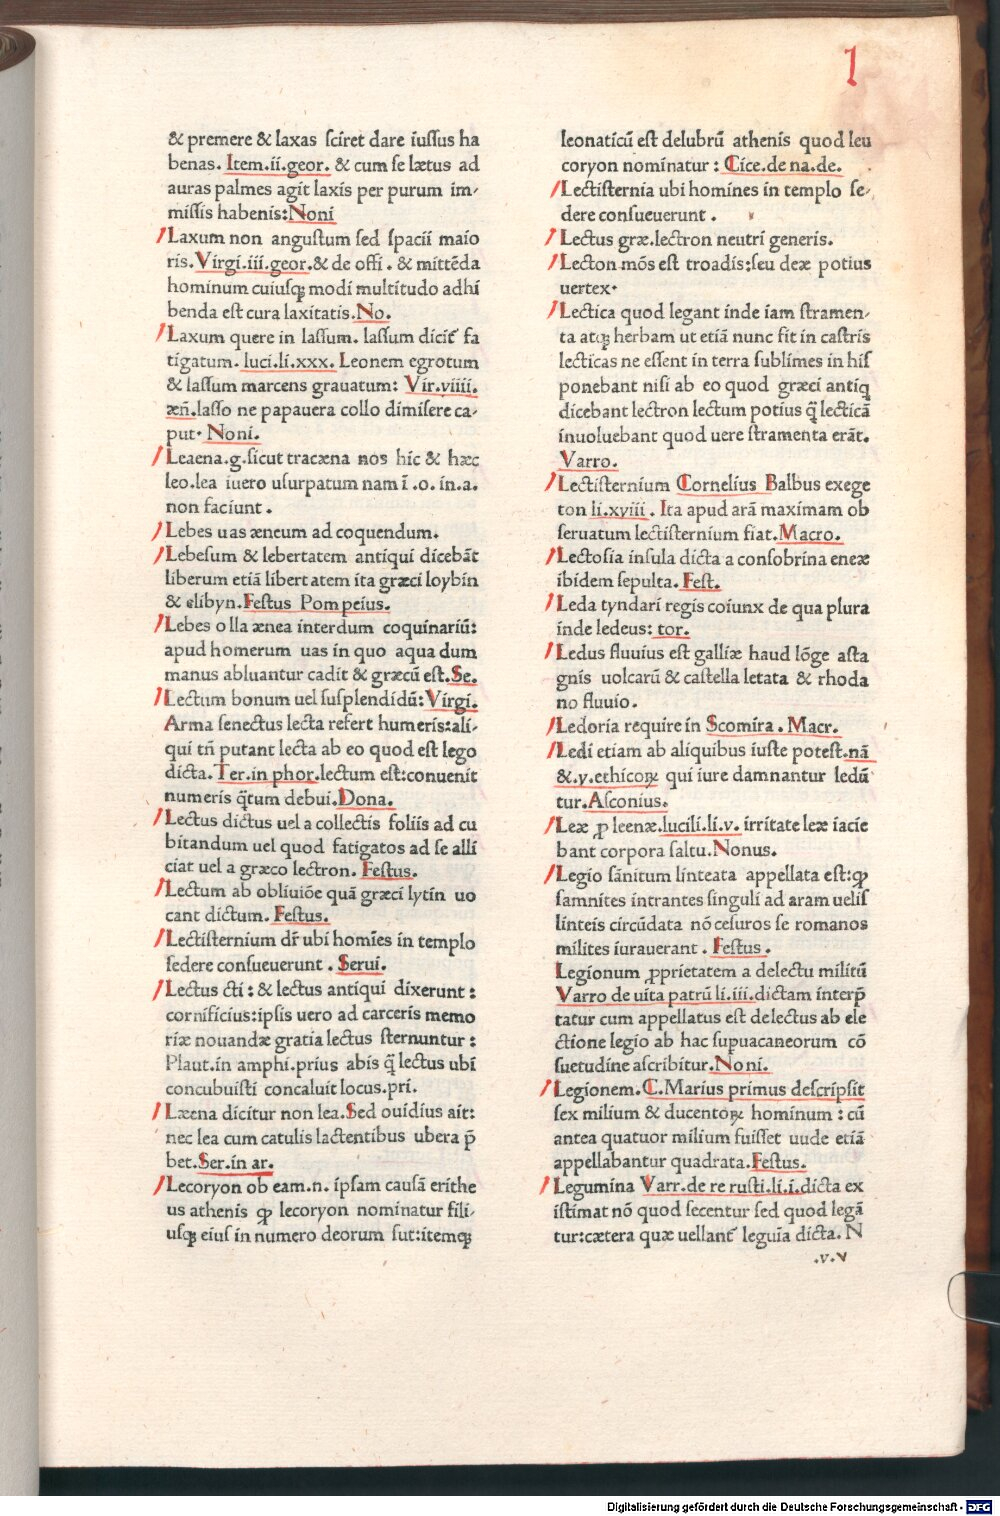 l
& premere & laxas sciret dare iussus ha
benas. Item.ii.geor. & cum se lætus ad
auras palmes agit laxis per purum im-
missis habenis:Noni
Laxum non angustum sed spacii maio
ris.Virgi.iii.geor.& de offi. & mittēda
hominum cuiusqꝫ modi multitudo adhi
benda est cura laxitatis.No.
Laxum quere in lassum. lassum dicit᷑ fa
tigatum. luci.li.xxx. Leonem egrotum
& lassum marcens grauatum: Vir.viiii.
æn̄.lasso ne papauera collo dimisere ca-
put. Noni.
Leaena.g.sicut tracæna nos hic & hæc
leo.lea iuero usurpatum nam ī .o. in.a.
non faciunt.
Lebes uas æneum ad coquendum.
Lebesum & lebertatem antiqui dicebāt
liberum etiā libert atem ita græci loybin
& elibyn.Festus Pompeius.
Lebes olla ænea interdum coquinariū:
apud homerum uas in quo aqua dum
manus abluantur cadit & græcū est.Se.
Lectum bonum uel susplendidū: Virgi.
Arma senectus lecta refert humeris:ali-
qui tn̄ putant lecta ab eo quod est lego
dicta. Ter.in phor.lectum est:conuenit
numeris q̄tum debui.Dona.
Lectus dictus uel a collectis foliis ad cu
bitandum uel quod fatigatos ad se alli
ciat uel a græco lectron. Festus.
Lectum ab obliuiōe quā græci lytin uo
cant dictum. Festus.
Lectisternium dr̄ ubi homīes in templo
sedere consueuerunt. Serui.
Lectus cti: & lectus antiqui dixerunt:
cornificius:ipsis uero ad carceris memo
riæ nouandæ gratia lectus sternuntur:
Plaut.in amphi.prius abis q̄ lectus ubi
concubuisti concaluit locus.pri.
Læena dicitur non lea.Sed ouidius ait:
nec lea cum catulis lactentibus ubera p̄
bet.Ser.in ar.
Lecoryon ob eam.n. ipsam causā erithe
us athenis ꝙ lecoryon nominatur fili-
usqꝫ eius in numero deorum sut:itemqꝫ
leonaticū est delubrū athenis quod leu
coryon nominatur: Cice.de na.de.
Lectisternia ubi homines in templo se-
dere consueuerunt.
Lectus græ.lectron neutri generis.
Lecton mōs est troadis:seu deæ potius
uertex.
Lectica quod legant inde iam stramen-
ta atqꝫ herbam ut etiā nunc fit in castris
lecticas ne essent in terra sublimes in his
ponebant nisi ab eo quod græci antiq
dicebant lectron lectum potius q̄ lecticā
inuoluebant quod uere stramenta erāt.
Varro.
Lectisternium Cornelius Balbus exege
ton li.xviii. Ita apud arā maximam ob
seruatum lectisternium fiat.Macro.
Lectosia insula dicta a consobrina eneæ
ibidem sepulta. Fest.
Leda tyndari regis coiunx de qua plura
inde ledeus: tor.
Ledus fluuius est galliæ haud lōge asta
gnis uolcarū & castella letata & rhoda
no fluuio.
Ledoria require in Scomira. Macr.
Ledi etiam ab aliquibus iuste potest.nā
&.v.ethicoꝝ qui iure damnantur ledū
tur.Asconius.
Leæ ꝓ leenæ.lucili.li.v. irritate leæ iacie
bant corpora saltu.Nonus.
Legio sānitum linteata appellata est:ꝙ
samnites intrantes singuli ad aram uelis
linteis circūdata nō cesuros se romanos
milites iurauerant. Festus.
Legionum ꝓprietatem a delectu militū
Varro de uita patrū li.iii.dictam interp̄
tatur cum appellatus est delectus ab ele
ctione legio ab hac supuacaneorum cō
suetudine ascribitur.Noni.
Legionem.C.Marius primus descripsit
sex milium & ducentoꝝ hominum: cū
antea quatuor milium fuisset uude etiā
appellabantur quadrata.Festus.
Legumina Varr.de re rusti.li.i.dicta ex
istimat nō quod secentur sed quod legā
tur:cætera quæ uellant᷑ leguīa dicta. N
.v.v
Digitalisierung gefördert durch die Deutsche Forschungsgemeinschaft - DFG